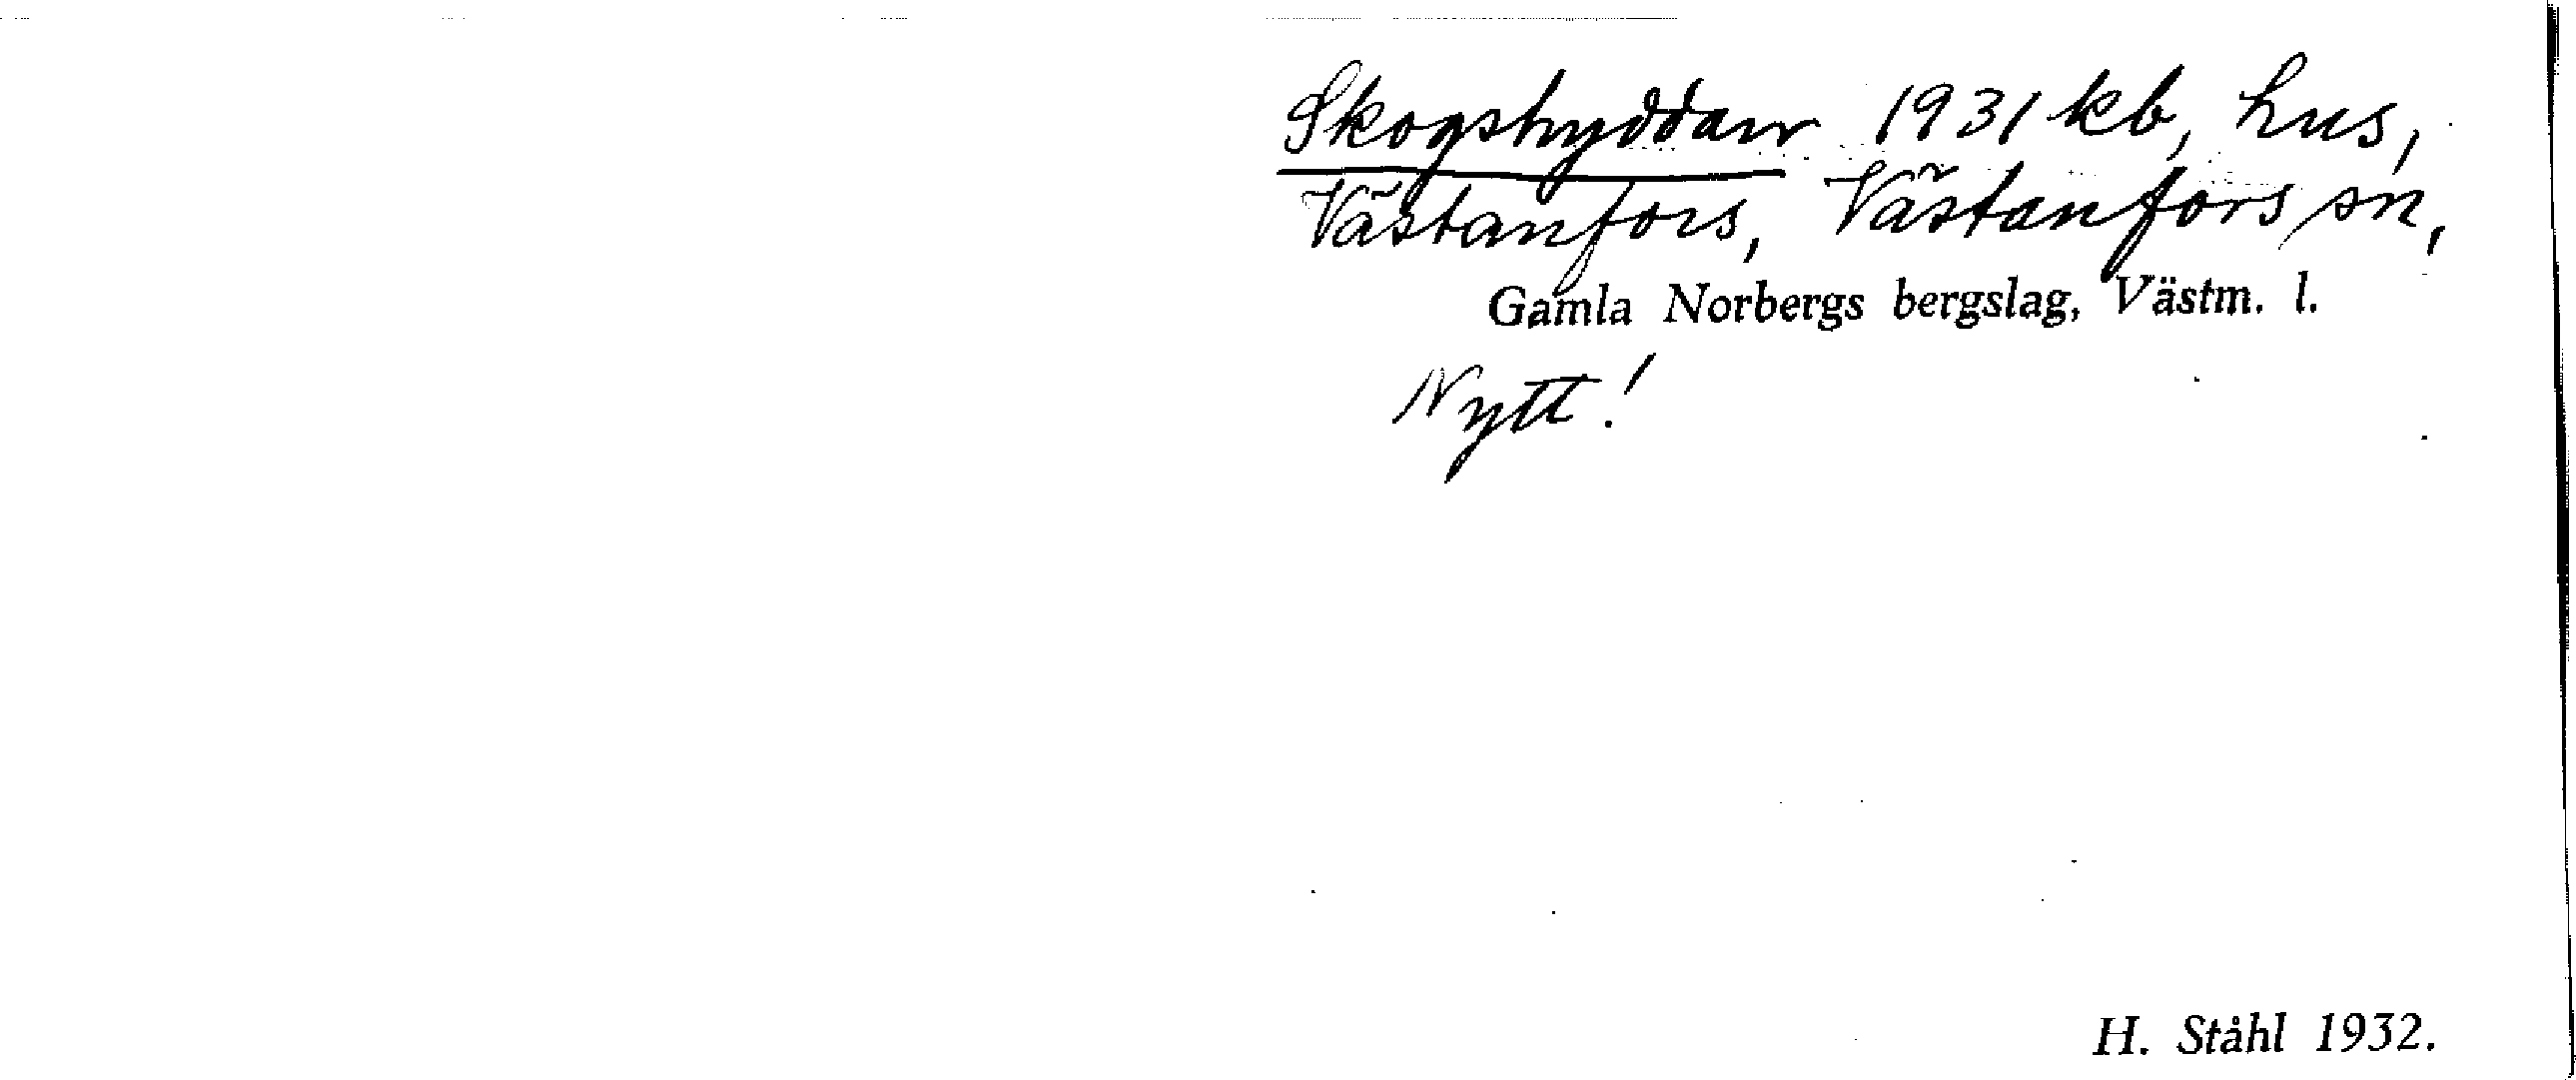 Skogshyddan 1931 kb, hus,
Västanfors, Västanfors sn,
Gamla Norbergs bergslag, Västm. l.
Nytt!
H. Ståhl 1932.